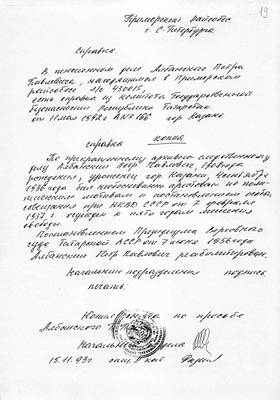 19
Приморский райсобес
г. С-Петербурга
Справка.
В пенсионном деле Албанского Петра
Павловича, находящимся в Приморском
райсобесе л/с 430015,
есть справка из Комитета Государственной
безопасности Республики Татарстан
от 11 мая А № 186 гор Казань
справка копия
По прекращенному архивно-следственному
делу Албанский Петр Павлович, 1902 года
рождения, уроженец гор. Казани, 4 сентября
1936 года был необоснованно арестован по
политическим мотивам и постановлением особого
совещания при НКВД СССР от 7 февраля
1937 г. осужден к пяти годам лишения
свободы.
Постановлением Президиума Верховного
суда Татарской АССР от 7 июня 1956 года
Албанский Петр Павлович реабилитирован.
Начальник подразделения подпись
печать.
Копия по просьбе
Албанского П.П.
Начальник
15.11.93г.